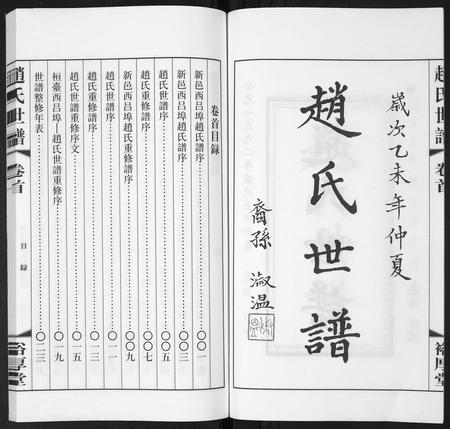 趙氏世譜
卷首
歲次乙未年仲夏
趙氏世譜
裔孫 淑温
裕厚堂
卷首目録
新邑西吕埠趙氏譜序……〇〇一
新邑西吕埠趙氏譜序……〇〇三
趙氏世譜序……〇〇五
趙氏重修譜序……〇〇七
新邑西吕埠趙氏重修譜序……〇〇九
趙氏世譜序……〇一一
趙氏重修譜序……〇一三
趙氏世譜重修序文……〇一五
桓臺西吕埠—趙氏世譜重修序……〇一九
世譜整修年表……〇二三
趙氏世譜
卷首
目録
裕厚堂